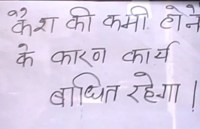 कैश की कमी होने
के कारण कार्य
बाधित रहेगा !